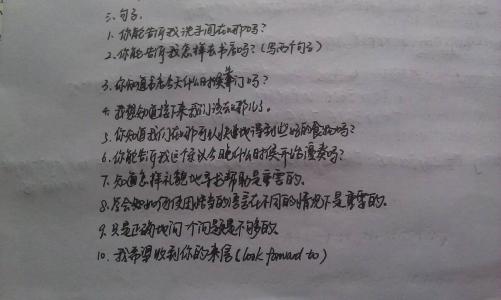 三. 句子.
1. 你能告诉我洗手间在哪吗?
2. 你能告诉我怎样去书店吗?(写两个句子)
3. 你知道书店今天什么时候关门吗?
4. 我想知道接下来我们该去哪儿.
5. 你知道我们在哪可以快速地得到些好的食物吗?
6. 你能告诉我这个乐队今晚什么时候开始演奏吗?
7. 知道怎样礼貌地寻求帮助是重要的.
8. 学会如何使用恰当的语言在不同的情况下是重要的.
9. 只是正确地问个问题是不够的.
10. 我希望收到你的来信(look forward to)